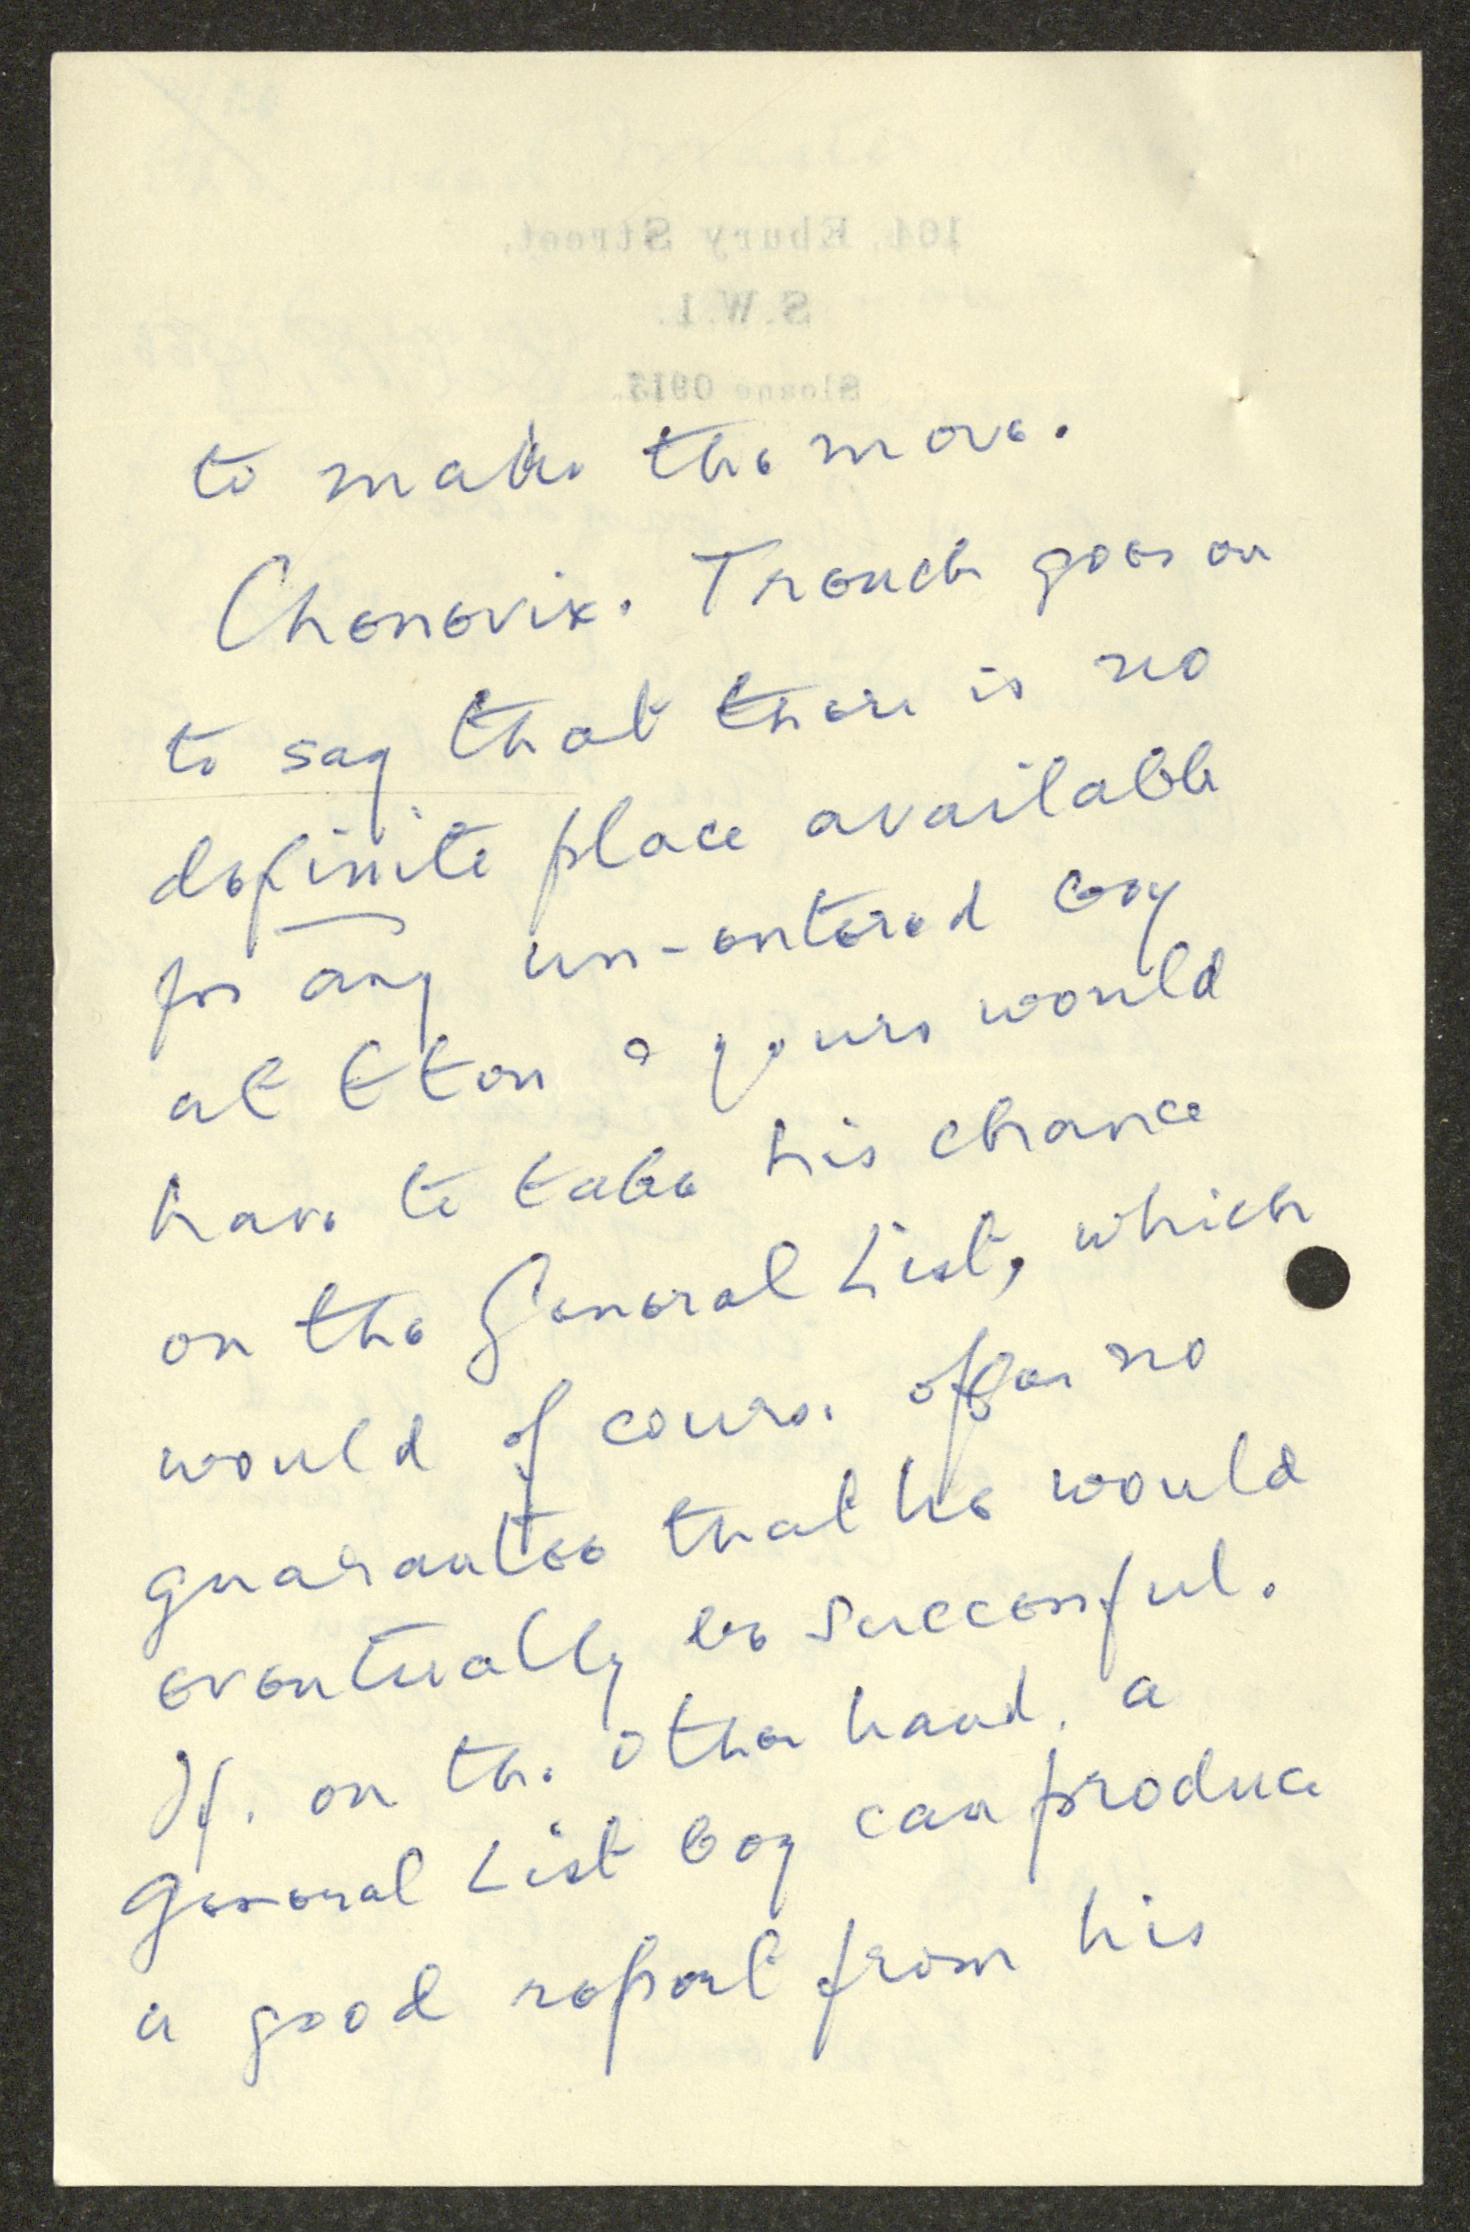 to make the move.
Chenevix. Trench goes on
to say that there is no
definite place available
for any un-entered boy
at Eton & yours would
have to take his chance
on the General List, which
would of course offer no
guarantee that he would
eventually be successful.
If, on the other hand, a
General List boy can produce
a good report from his
164, Ebury Street,
S.W.1.
Sloane 0913.